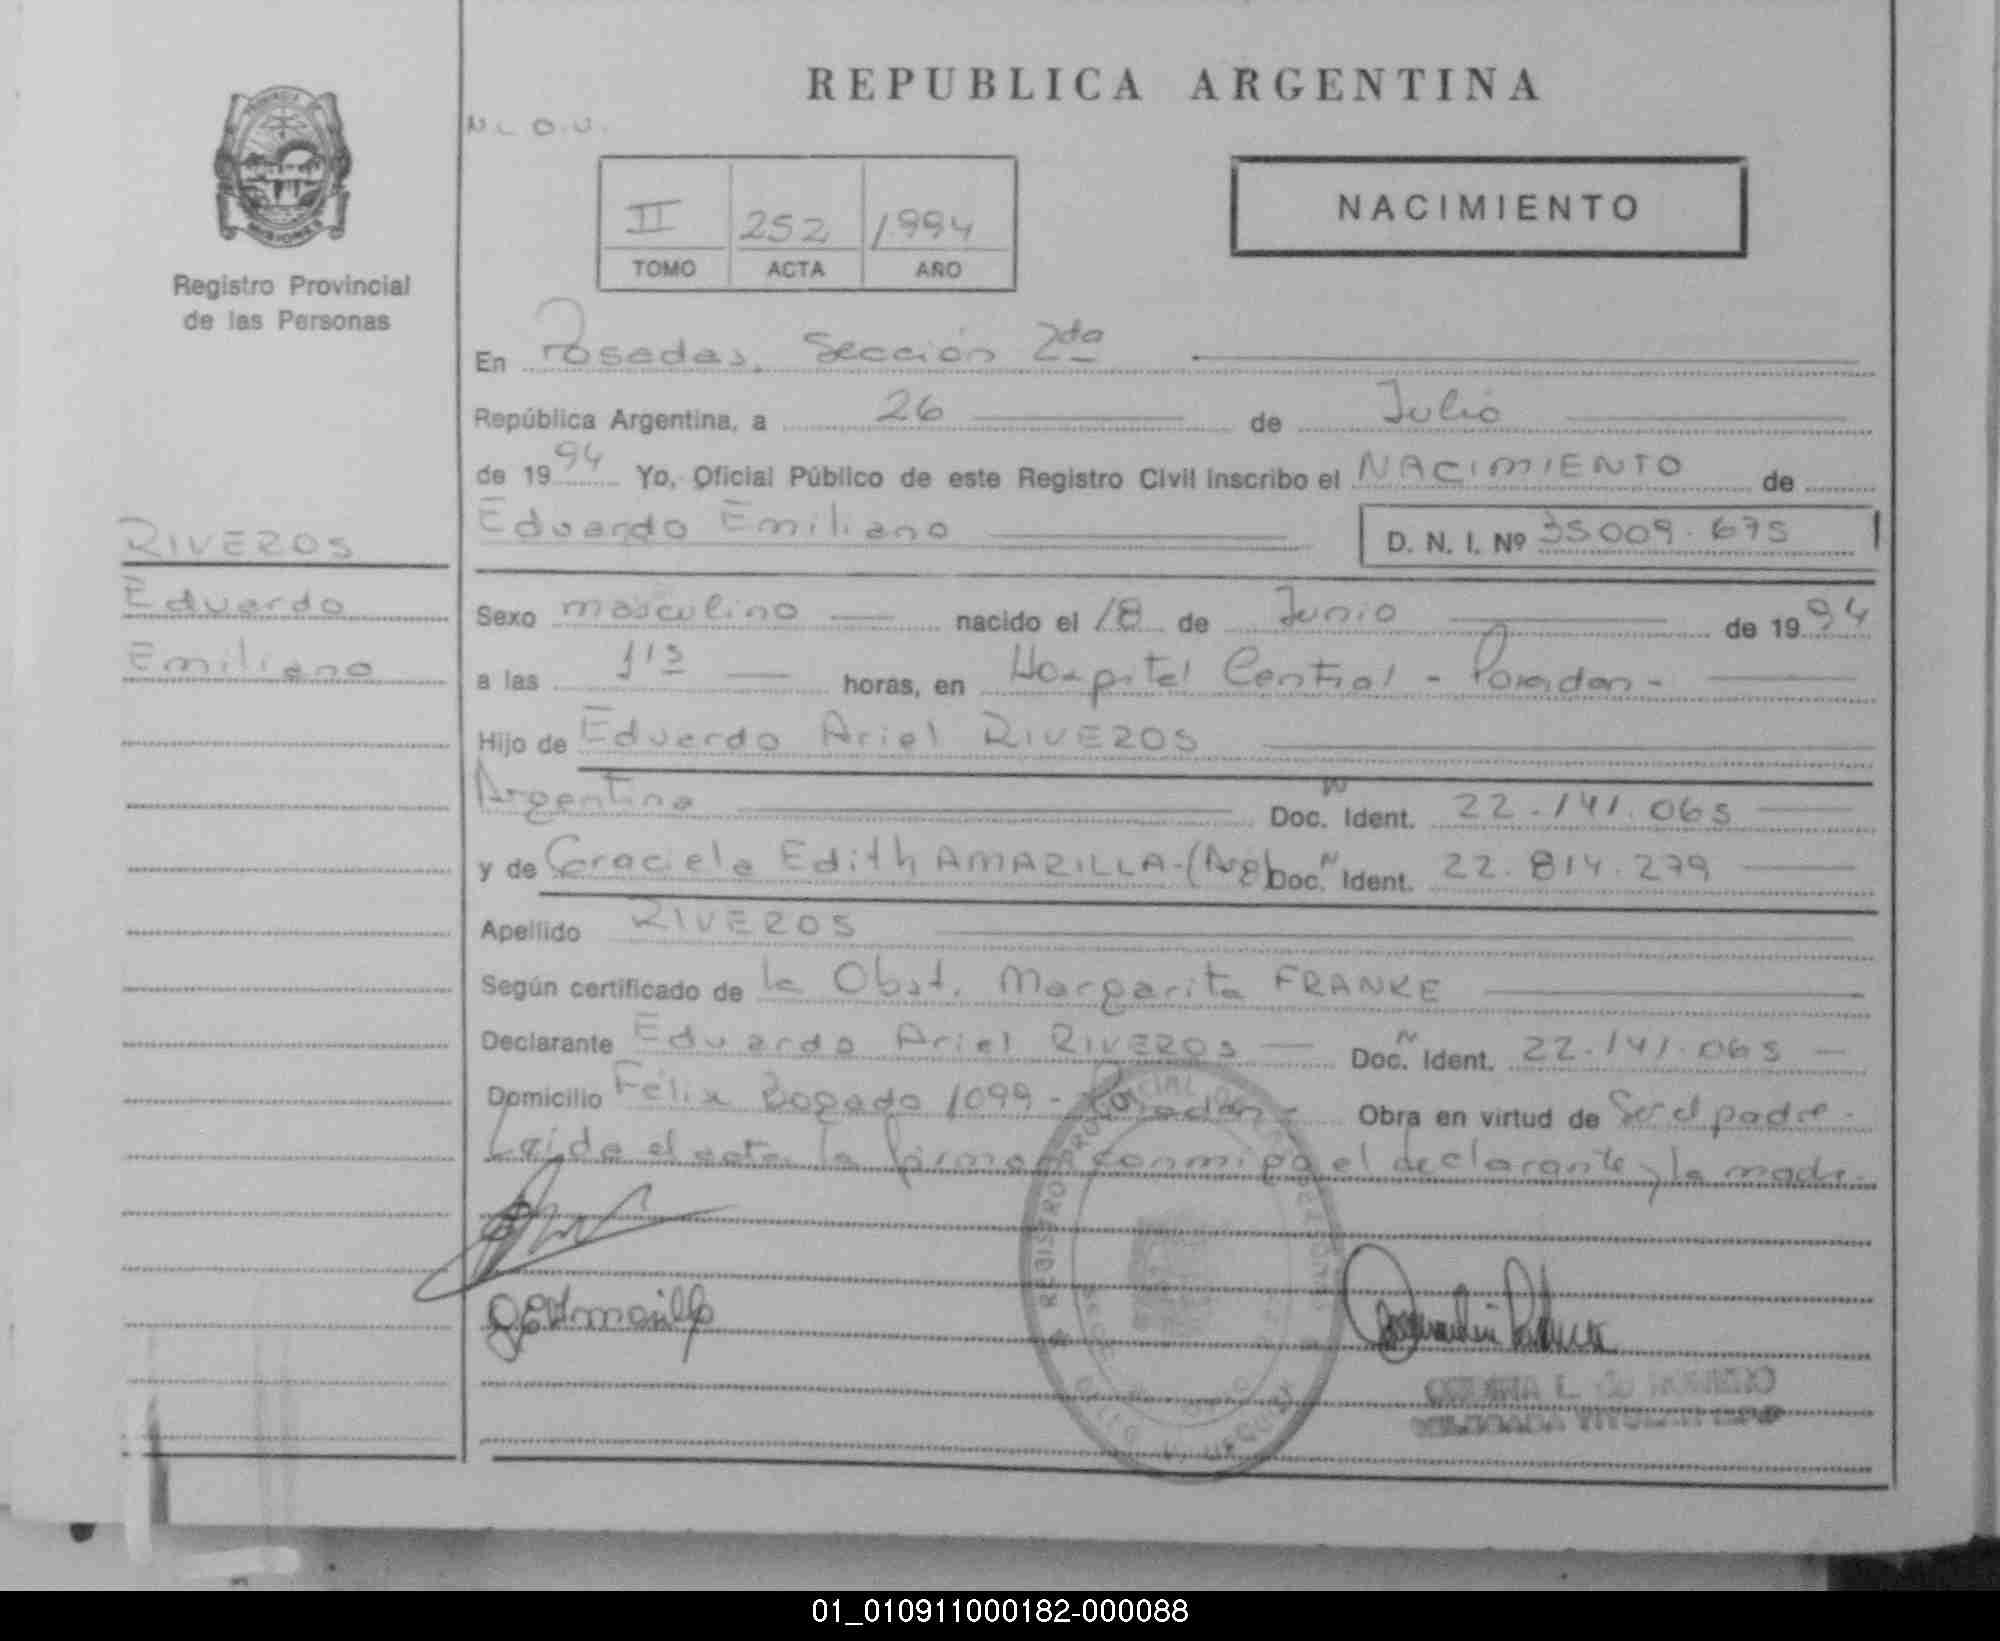 REPUBLICA ARGENTINA
NACIMIENTO
II 252 1994
TOMO ACTA AÑO
Registro Provincial
de las Personas
MISIONES
RIVEROS
Eduardo
Emiliano
En Posadas, Sección 2da
República Argentina, a 26 de Julio
de 1994 Yo, Oficial Público de este Registro Civil inscribo el NACIMIENTO de
Eduardo Emiliano D. N. I. Nº 35009.675
Sexo masculino nacido el 18 de Junio de 1994
a las 1 15 horas, en Hospital Central - Posadas -
Hijo de Eduardo Ariel RIVEROS
Argentina Doc. Ident. 22.141.065
y de Graciela Edith AMARILLA - (Arg) Doc. Ident. 22.814.279
Apellido RIVEROS
Según certificado de la Obst. Margarita FRANKE
Declarante Eduardo Ariel RIVEROS Doc. Ident. 22.141.065
Domicilio Félix Bogado 1099 - Posadas - Obra en virtud de Ser el padre -
Leída el acta, la firman conmigo el declarante y la madre.
REGISTRO PROVINCIAL DE LAS PERSONAS
01_010911000182-000088